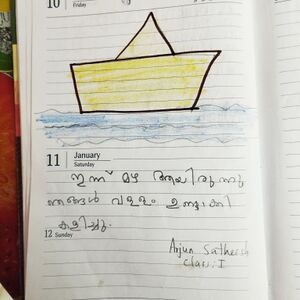 10
Friday
11 January
Saturday
ഇന്ന് മഴ ആയിരുന്നു
ഞങ്ങൾ വള്ളം ഉണ്ടാക്കി
കളിച്ചു.
12 Sunday
Arjun Satheesh
Class: I